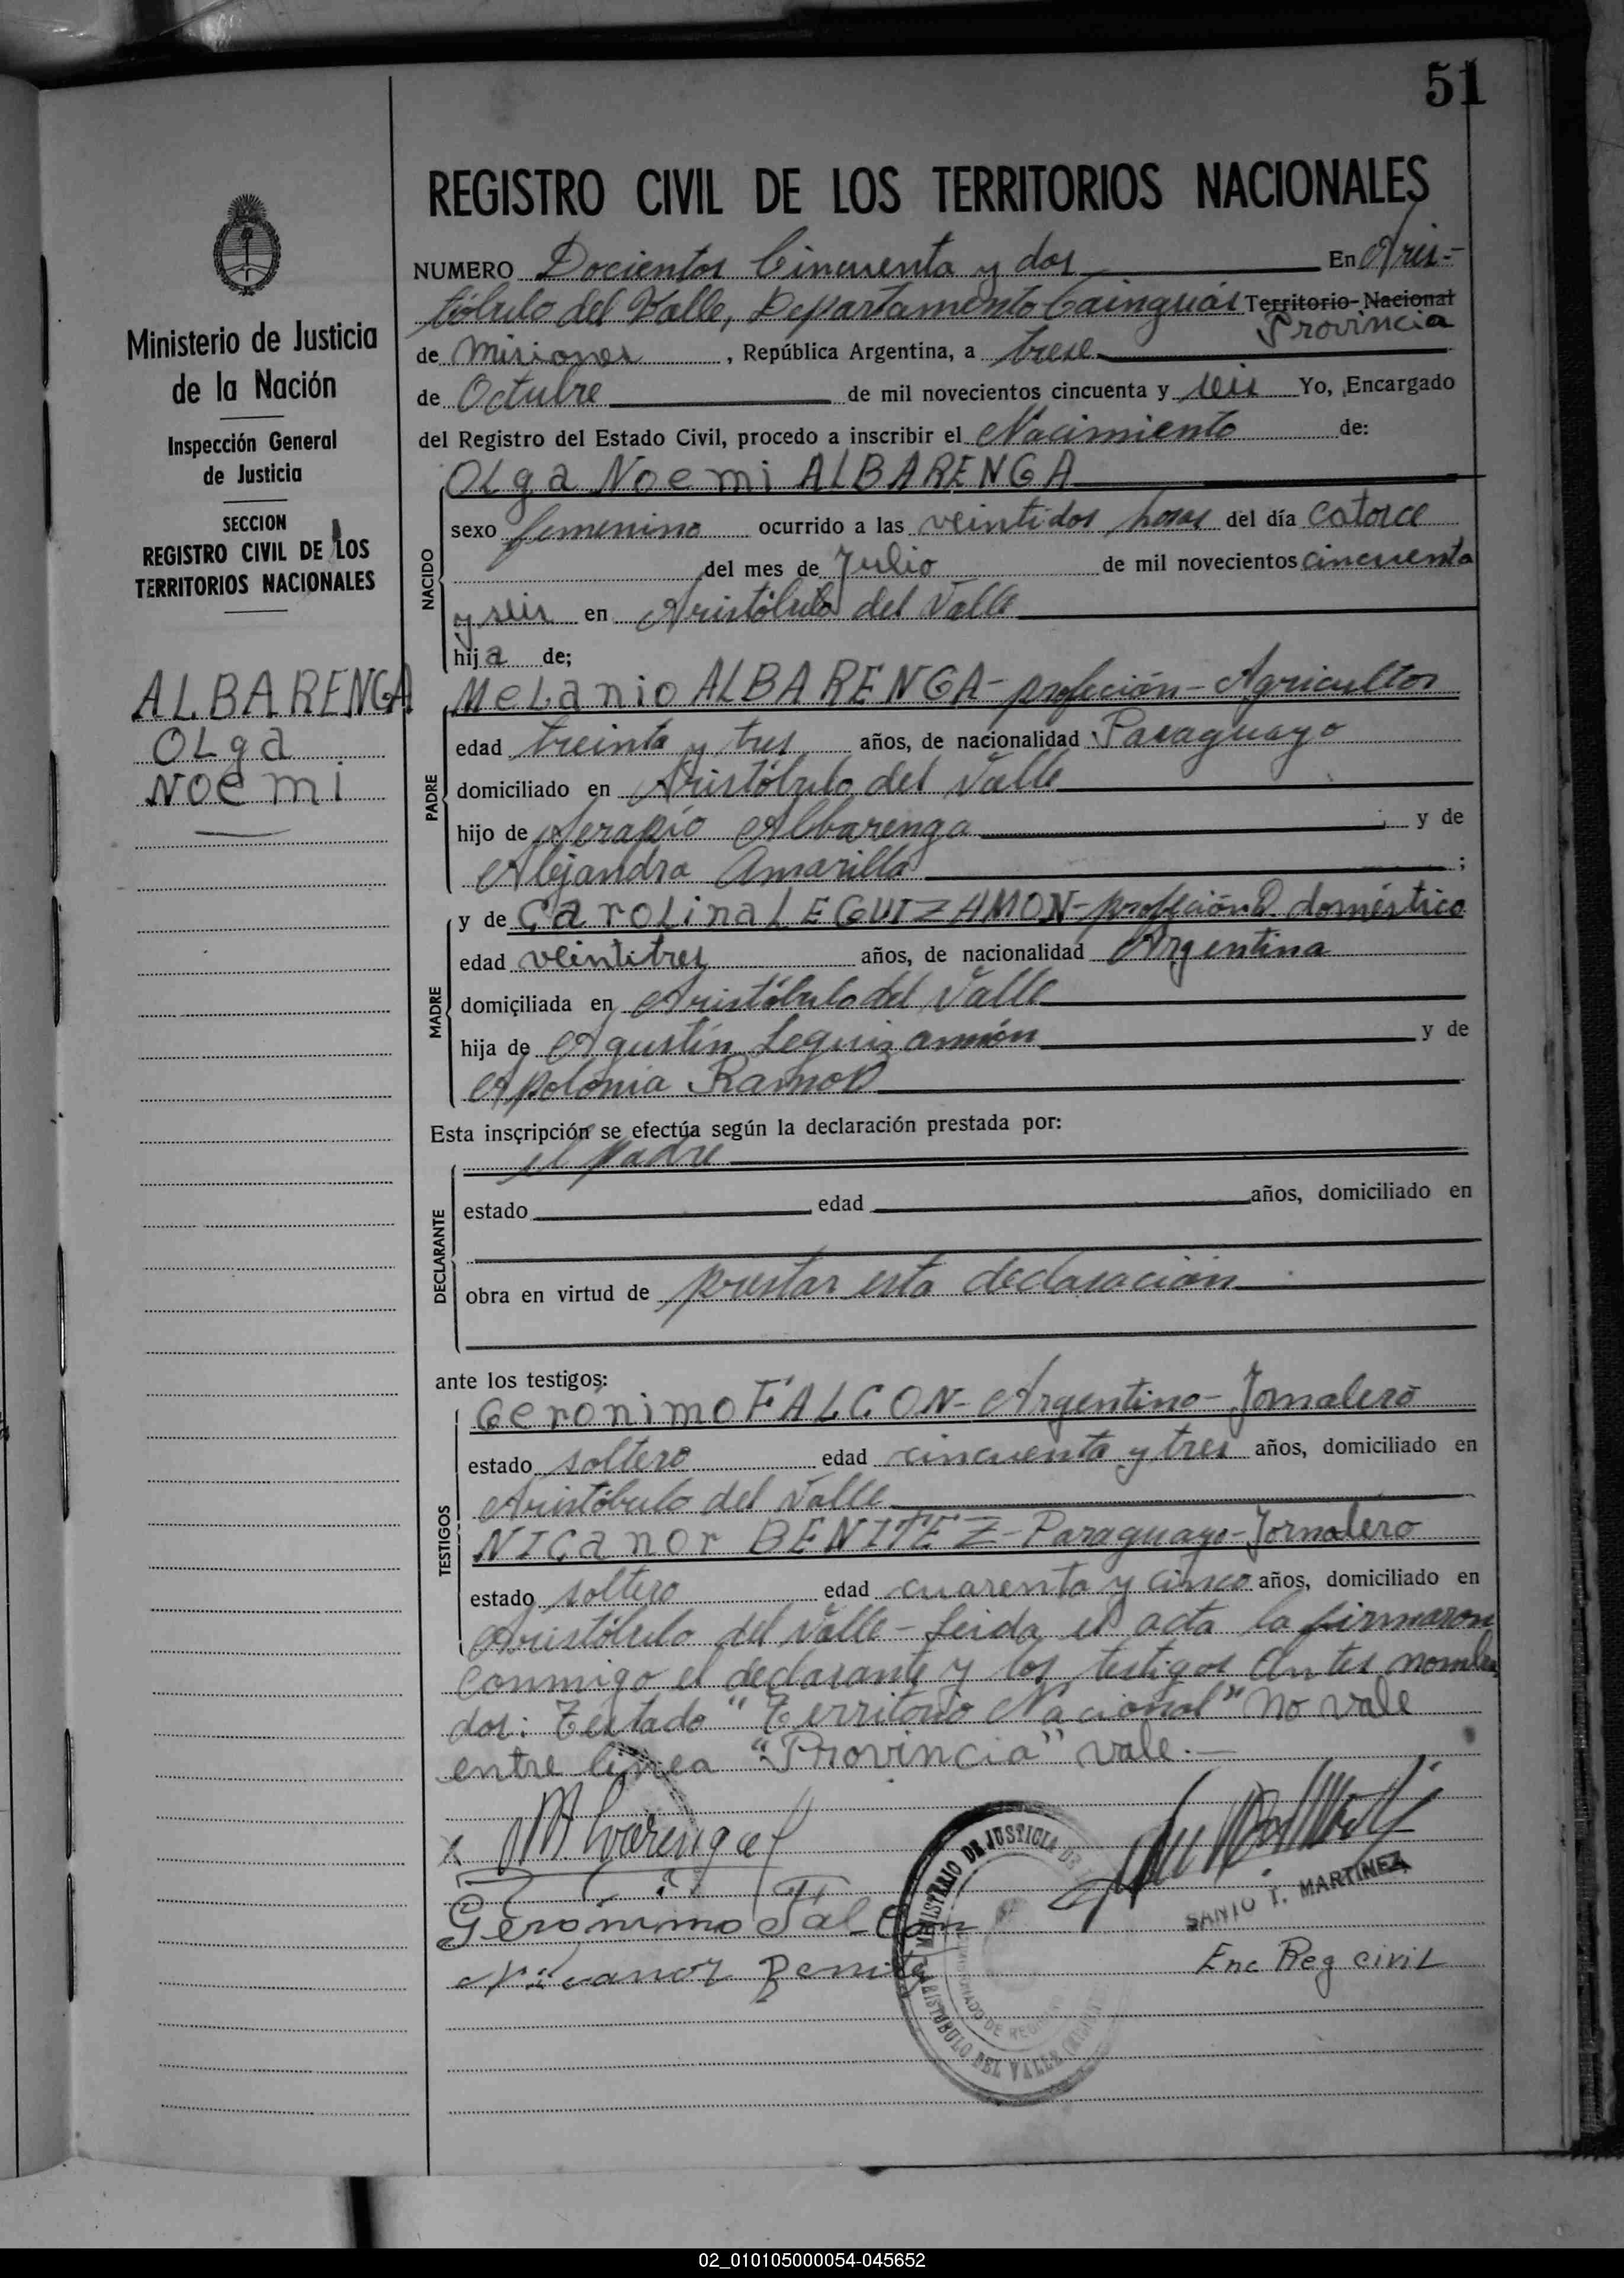 51
REGISTRO CIVIL DE LOS TERRITORIOS NACIONALES
Ministerio de Justicia
de la Nación
Inspección General
de Justicia
SECCION
REGISTRO CIVIL DE LOS
TERRITORIOS NACIONALES
ALBARENGA
OLga
NOemi
NUMERO Docientos Cincuenta y dos En Aris-
tóbulo del Valle, Departamento Cainguás Territorio Nacional
Provincia
de Misiones, República Argentina, a trece
de Octubre de mil novecientos cincuenta y seis Yo, Encargado
del Registro del Estado Civil, procedo a inscribir el Nacimiento de:
OLga Noemi ALBARENGA
NACIDO
sexo femenino ocurrido a las veintidos horas del día catorce
del mes de Julio de mil novecientos cincuenta
y seis en Aristóbulo del Valle
hija de;
PADRE
MeLanio ALBARENGA - profeción - Agricultor
edad treinta y tres años, de nacionalidad Paraguayo
domiciliado en Aristóbulo del Valle
hijo de Serapio Albarenga y de
Alejandra Amarilla ;
MADRE
y de CaroLina LEGUIZAMON - profeción Q. doméstico
edad veintitres años, de nacionalidad Argentina
domiciliada en Aristóbulo del Valle
hija de Agustín Leguizamón y de
Apolonia Ramos
Esta inscripción se efectúa según la declaración prestada por:
DECLARANTE
el padre
estado edad años, domiciliado en
obra en virtud de prestar esta declaración
ante los testigos:
TESTIGOS
Gerónimo FALCON - Argentino - Jornalero
estado soltero edad cincuenta y tres años, domiciliado en
Aristóbulo del Valle
NICanor BENITEZ - Paraguayo - Jornalero
estado soltero edad cuarenta y cinco años, domiciliado en
Aristóbulo del Valle - Leida el acta la firmaron
conmigo el declarante y los testigos antes nombra
dos: Testado "Territorio Nacional" no vale
entre linea "Provincia" vale.
x M Alvarenga
Gerónimo Falcon
Nicanor Benitez
MINISTERIO DE JUSTICIA DE
ARISTOBULO DEL VALLE
SANTO T. MARTINEZ
Enc Reg civil
02_010105000054-045652